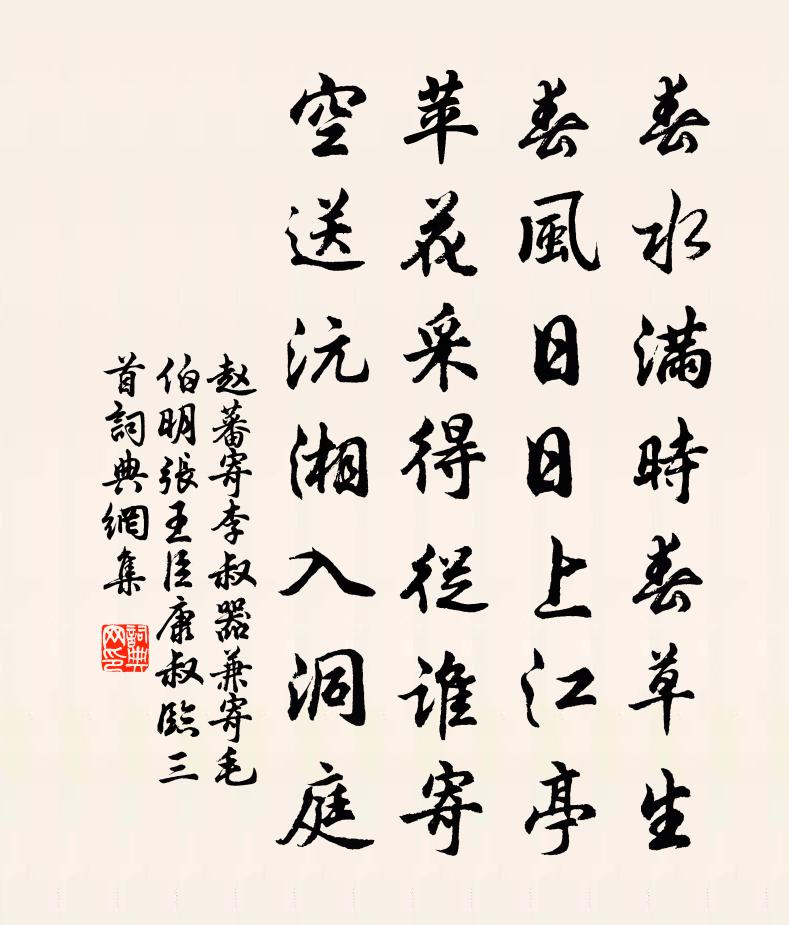 春水滿時春草生
春風日日上江亭
苹花采得從誰寄
空送沅湘入洞庭
赵蕃寄李叔器兼寄毛
伯明張王臣康叔臨三
首詞典網集
詞典网印